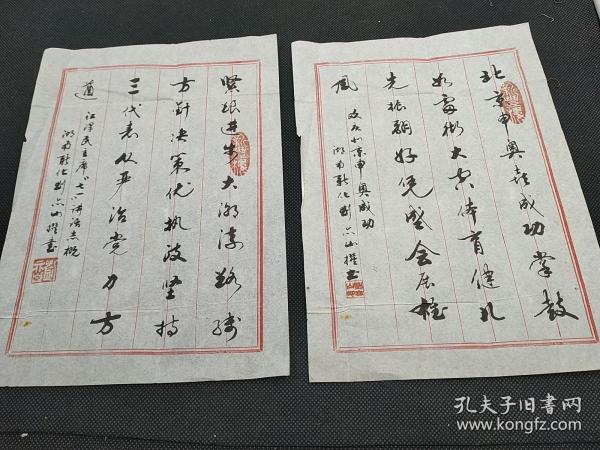 北京申奥喜成功掌鼓
如雷大体育健儿
先振翮好凭盛会展雄
风
北京申奥成功
湖南新化刘六山撰书
紧跟进步大潮流路线
方针决策优执政坚持
三代表从严治党力方
遒
江泽民主席“七一”讲话志概
湖南新化刘六山撰书
孔夫子旧书网
www.kongfz.com